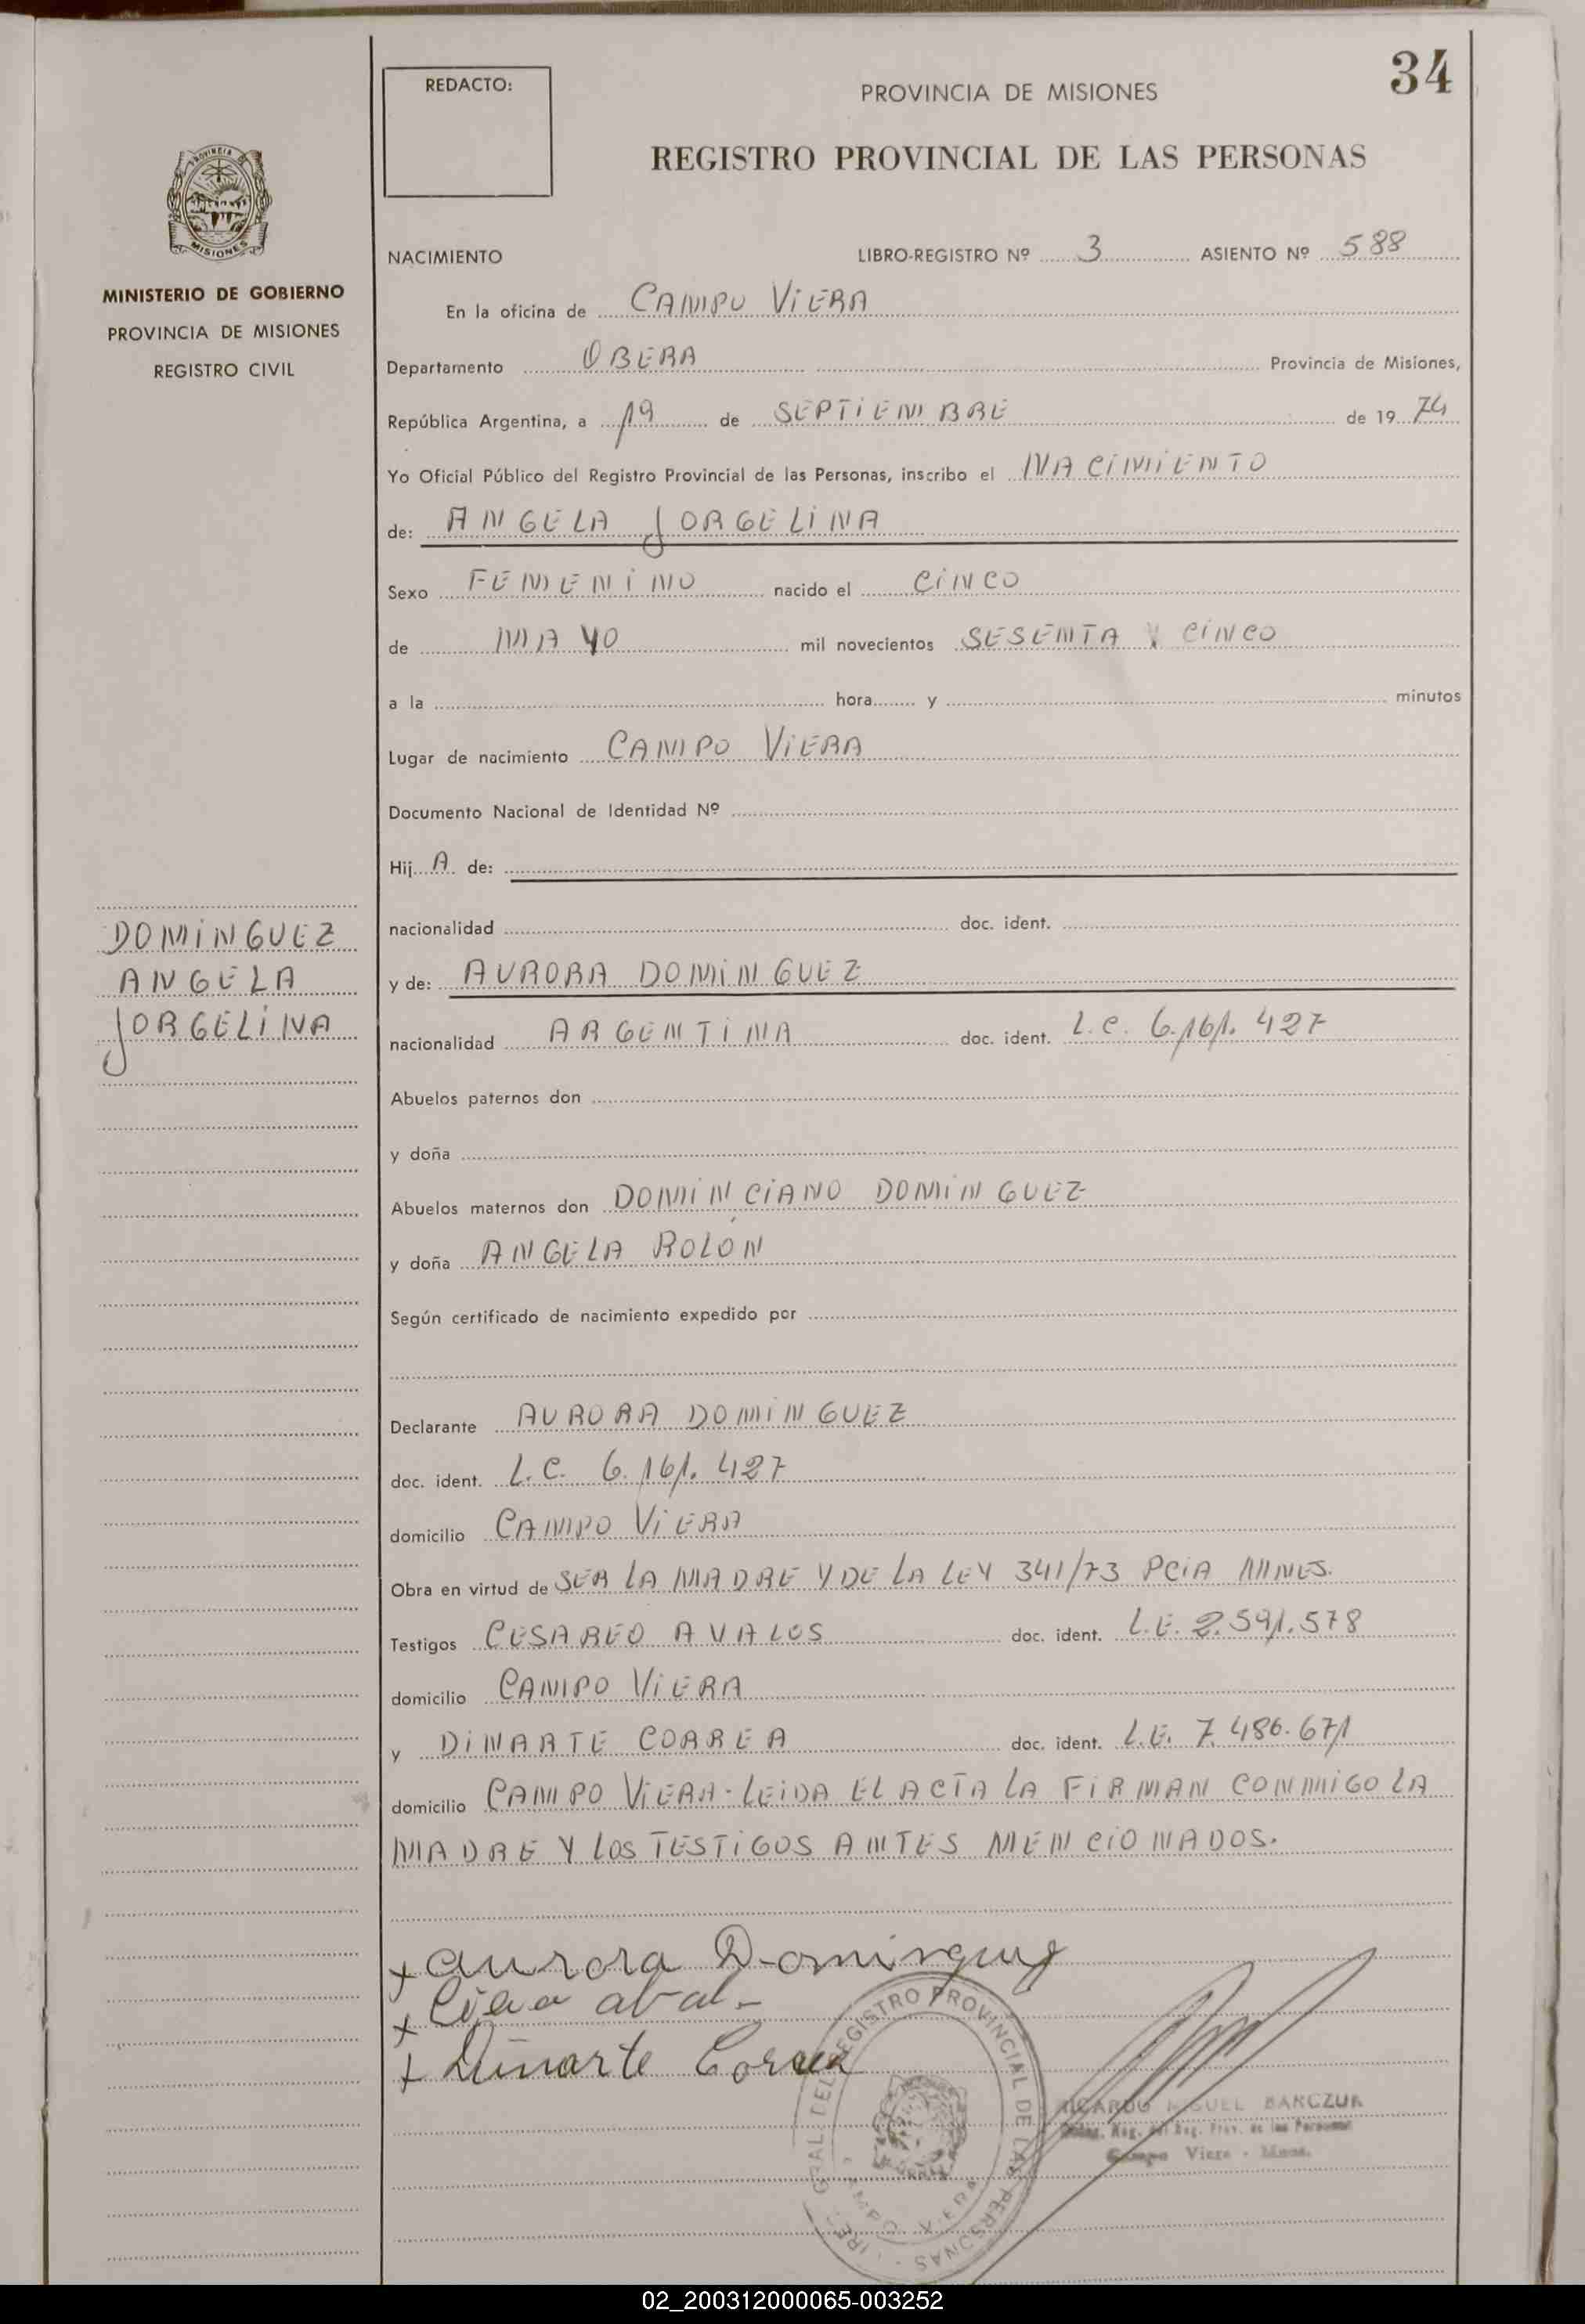 34
REDACTO:
PROVINCIA DE MISIONES
REGISTRO PROVINCIAL DE LAS PERSONAS
PROVINCIA DE
MISIONES
MINISTERIO DE GOBIERNO
PROVINCIA DE MISIONES
REGISTRO CIVIL
NACIMIENTO LIBRO-REGISTRO Nº 3 ASIENTO Nº 588
En la oficina de CAMPO VIERA
Departamento OBERA Provincia de Misiones,
República Argentina, a 19 de SEPTIEMBRE de 19 74
Yo Oficial Público del Registro Provincial de las Personas, inscribo el NACIMIENTO
de: ANGELA JORGELINA
Sexo FEMENINO nacido el CINCO
de MAYO mil novecientos SESENTA Y CINCO
a la hora y minutos
Lugar de nacimiento CAMPO VIERA
Documento Nacional de Identidad Nº
Hij A de:
nacionalidad doc. ident.
y de: AURORA DOMINGUEZ
nacionalidad ARGENTINA doc. ident. L.C. 6.161.427
DOMINGUEZ
ANGELA
JORGELINA
Abuelos paternos don
y doña
Abuelos maternos don DOMINCIANO DOMINGUEZ
y doña ANGELA ROLÓN
Según certificado de nacimiento expedido por
Declarante AURORA DOMINGUEZ
doc. ident. L.C. 6.161.427
domicilio CAMPO VIERA
Obra en virtud de SER LA MADRE Y DE LA LEY 341/73 PCIA MNES.
Testigos CESAREO AVALOS doc. ident. L.E. 2.591.578
domicilio CAMPO VIERA
y DINARTE CORREA doc. ident. L.E. 7.486.671
domicilio CAMPO VIERA-LEIDA EL ACTA LA FIRMAN CONMIGO LA
MADRE Y LOS TESTIGOS ANTES MENCIONADOS.
+ Aurora Dominguez
+
+ Dinarte Correa
GRAL DEL REGISTRO PROVINCIAL DE LAS PERSONAS
CAMPO VIERA
RICARDO MIGUEL BARCZUK
Reg. Prov. de las Personas
Campo Viera - Mnes.
02_200312000065-003252